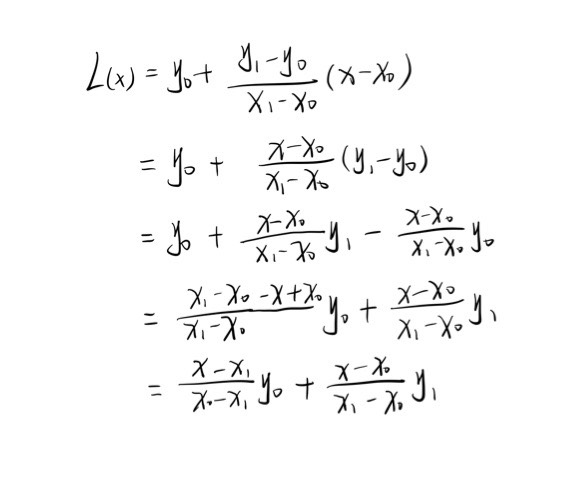 L(x) = y₀ + \frac{y₁-y₀}{x₁-x₀} (x-x₀)
= y₀ + \frac{x-x₀}{x₁-x₀} (y₁-y₀)
= y₀ + \frac{x-x₀}{x₁-x₀} y₁ - \frac{x-x₀}{x₁-x₀} y₀
= \frac{x₁-x₀-x+x₀}{x₁-x₀} y₀ + \frac{x-x₀}{x₁-x₀} y₁
= \frac{x-x₁}{x₀-x₁} y₀ + \frac{x-x₀}{x₁-x₀} y₁